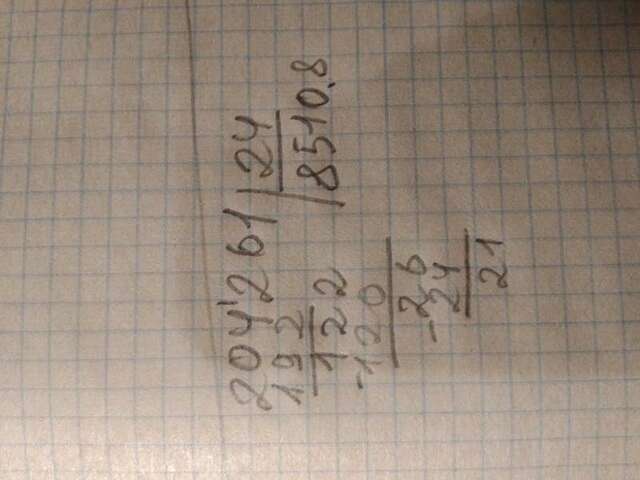 204'261 | 24
192 | 8510.8
122
-120
-26
24
21